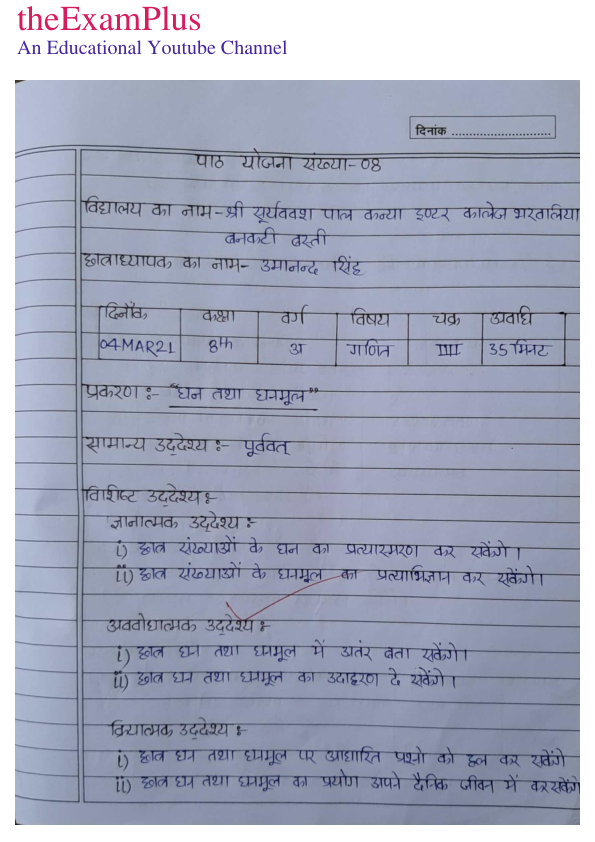 theExamPlus
An Educational Youtube Channel
दिनांक ............................
पाठ योजना संख्या-08
विद्यालय का नाम-श्री सूर्यवंश पाल कन्या इण्टर कालेज भरवालिया
बनकटी बस्ती
छात्राध्यापक का नाम- उमानन्द सिंह
दिनाँक कक्षा वर्ग विषय चक्र अवधि
04MAR21 8th अ गणित III 35 मिनट
प्रकरण :- "घन तथा घनमूल"
सामान्य उद्देश्य :- पूर्ववत्
विशिष्ट उद्देश्य :-
ज्ञानात्मक उद्देश्य :-
i) छात्र संख्याओं के घन का प्रत्यास्मरण कर सकेंगे।
ii) छात्र संख्याओं के घनमूल का प्रत्याभिज्ञान कर सकेंगे।
अवबोधात्मक उद्देश्य :-
i) छात्र घन तथा घनमूल में अतंर बता सकेंगे।
ii) छात्र घन तथा घनमूल का उदाहरण दे सकेंगे।
क्रियात्मक उद्देश्य :-
i) छात्र घन तथा घनमूल पर आधारित प्रश्नो को हल कर सकेंगे
ii) छात्र घन तथा घनमूल का प्रयोग अपने दैनिक जीवन में कर सकेंगे